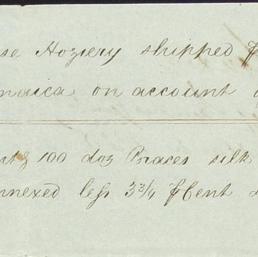 se Hoziery shipped
maica on account
100 doz Braces silk
nnexed less 3 3/4 ⅌Cent